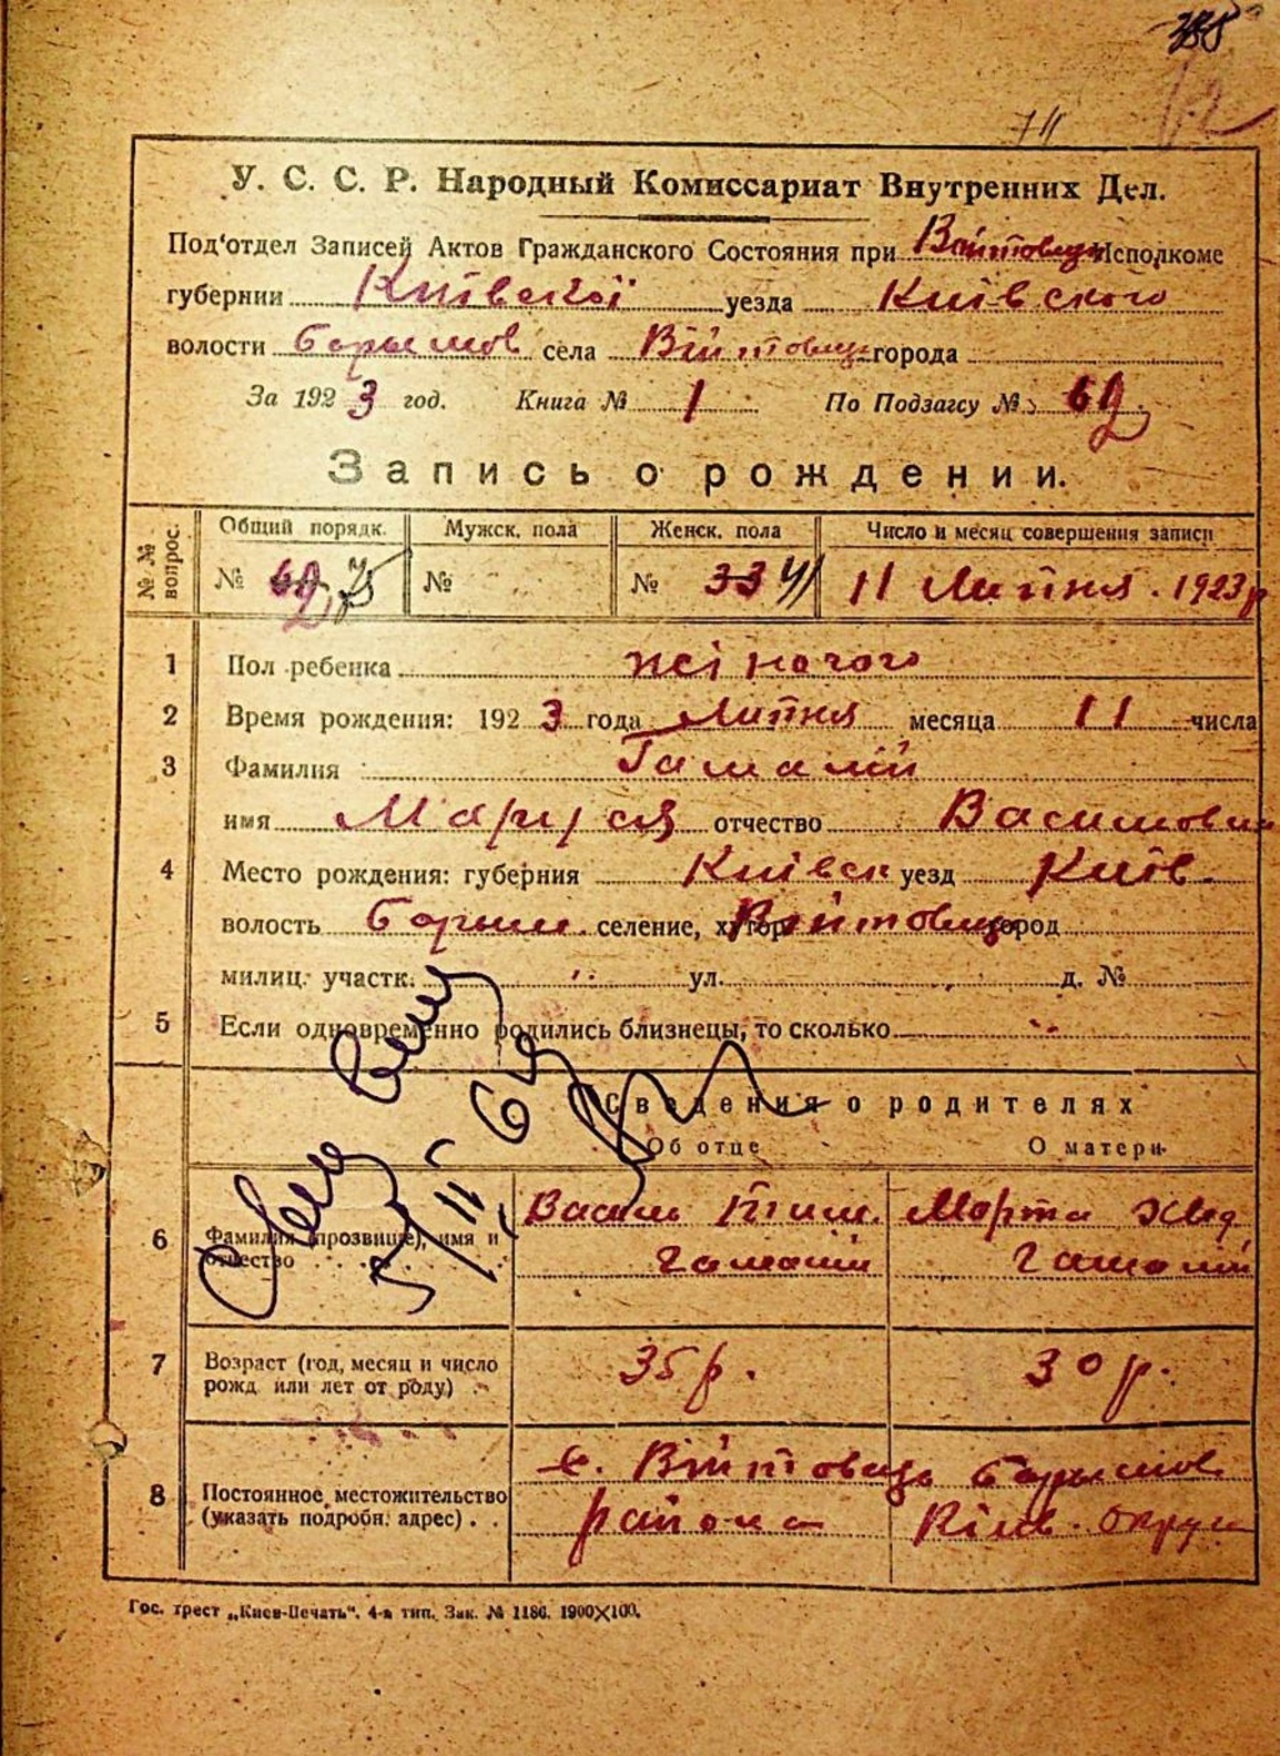 У. С. С. Р. Народный Комиссариат Внутренних Дел.
Под'отдел Записей Актов Гражданского Состояния при Войтовец Исполкоме
губернии Київської уезда Київського
волости Баришов села Війтовець города
За 1923 год. Книга № 1 По Подзагсу № 62
Запись о рождении.
№ № вопрос. Общий порядк. Мужск. пола Женск. пола Число и месяц совершения записи
№ 62 75 № № 33 41 11 Липня. 1923 р
1 Пол ребенка жіночого
2 Время рождения: 1923 года Липня месяца 11 числа
3 Фамилия Гамалій
имя Маруся отчество
4 Место рождения: губерния Київск уезд Київ.
волость Бориш. селение, хутор Війтовець город
милиц. участк. ул. д. №
5 Если одновременно родились близнецы, то сколько
Сведения о родителях
Об отце О матери
6 Фамилия (прозвище), имя и отчество Василь Тим. Марта Хвед.
Гамалій Гамалій
7 Возраст (год, месяц и число рожд или лет от роду) 35 р. 30 р.
8 Постоянное местожительство (указать подробн. адрес) с. Війтовець Баришов
района Київ. округи
Гос. трест „Киев-Печать“. 4-я тип. Зак. № 1186. 1900×100.